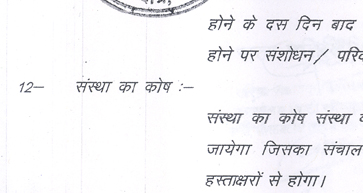 होने के दस दिन बाद
होने पर संशोधन/
12– संस्था का कोष :–
संस्था का कोष संस्था
जायेगा जिसका
हस्ताक्षरों से होगा।